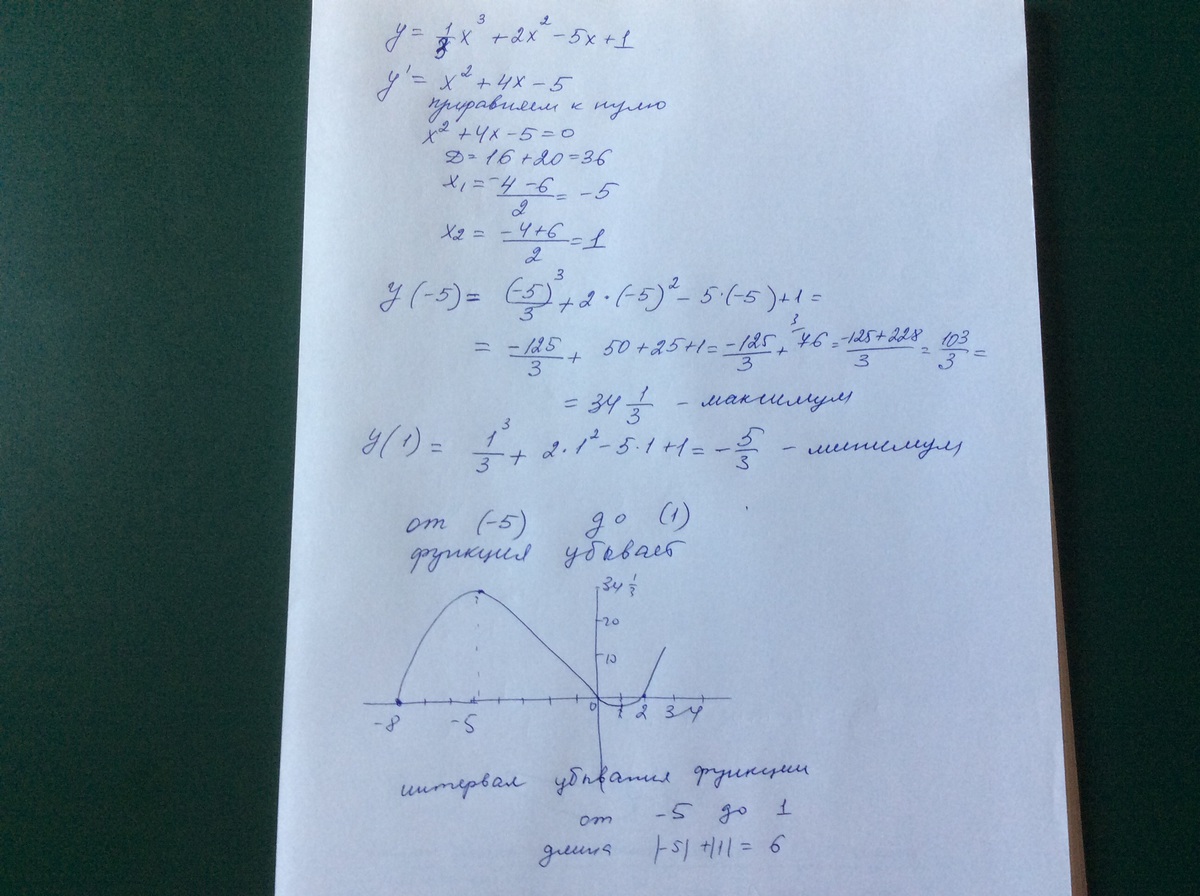 y = 1/3 x³ + 2x² - 5x + 1
y' = x² + 4x - 5
приравняем к нулю
x² + 4x - 5 = 0
D = 16 + 20 = 36
x₁ = (-4 - 6)/2 = -5
x₂ = (-4 + 6)/2 = 1
y(-5) = (-5)³/3 + 2·(-5)² - 5·(-5) + 1 =
= -125/3 + 50 + 25 + 1 = -125/3 + ³⁻76 = (-125 + 228)/3 = 103/3 =
= 34 1/3 - максимум
y(1) = 1³/3 + 2·1² - 5·1 + 1 = -5/3 - минимум
от (-5) до (1)
функция убывает
34 1/3
20
10
-8 -5 0 1 2 3 4
интервал убывания функции
от -5 до 1
длина |-5| + |1| = 6